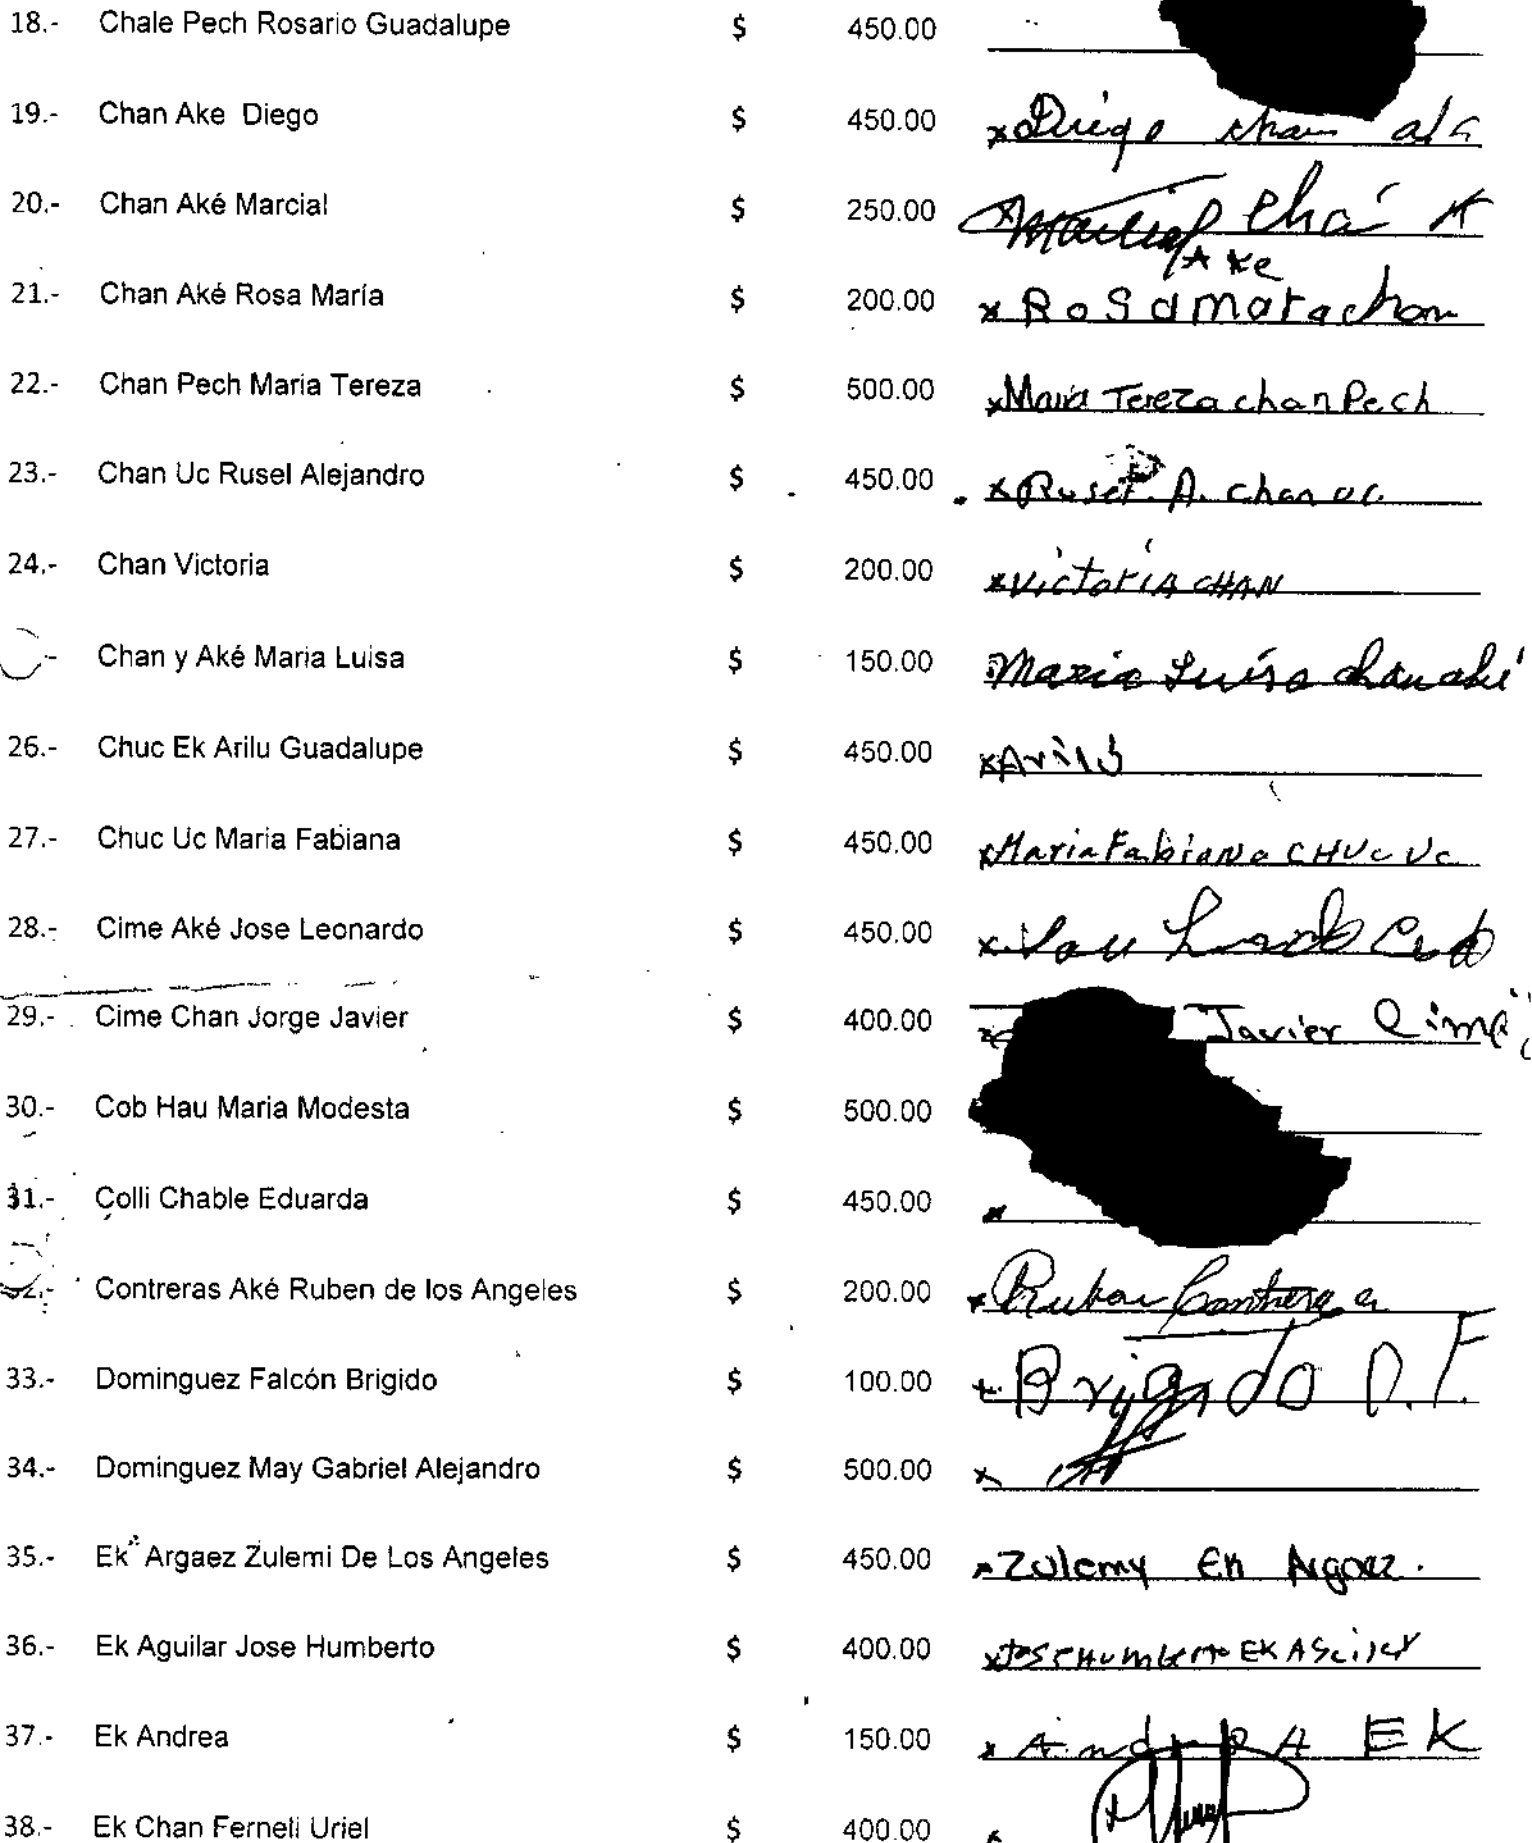 18.- Chale Pech Rosario Guadalupe $ 450.00
19.- Chan Ake Diego $ 450.00 x Diego chan
20.- Chan Aké Marcial $ 250.00 x Marcial Cha
Ake
21.- Chan Aké Rosa María $ 200.00 x Rosa maria chan
22.- Chan Pech Maria Tereza $ 500.00 x Maria Tereza chan Pech
23.- Chan Uc Rusel Alejandro $ 450.00 x Rusel. A. chan uc.
24.- Chan Victoria $ 200.00 x Victoria CHAN
.- Chan y Aké Maria Luisa $ 150.00 Maria Luisa chan aké
26.- Chuc Ek Arilu Guadalupe $ 450.00 x Arilú
27.- Chuc Uc Maria Fabiana $ 450.00 x Maria Fabiana CHUc Uc
28.- Cime Aké Jose Leonardo $ 450.00 x
29.- Cime Chan Jorge Javier $ 400.00 x Javier Cime
30.- Cob Hau Maria Modesta $ 500.00
31.- Colli Chable Eduarda $ 450.00 x
32.- Contreras Aké Ruben de los Angeles $ 200.00 x Ruben Contreras
33.- Dominguez Falcón Brigido $ 100.00 x Brigido D.F.
34.- Dominguez May Gabriel Alejandro $ 500.00 x
35.- Ek Argaez Zulemi De Los Angeles $ 450.00 x Zulemy Ek Argaez.
36.- Ek Aguilar Jose Humberto $ 400.00 x Jose Humberto EK Aguilar
37.- Ek Andrea $ 150.00 x Andrea EK
38.- Ek Chan Ferneli Uriel $ 400.00 x